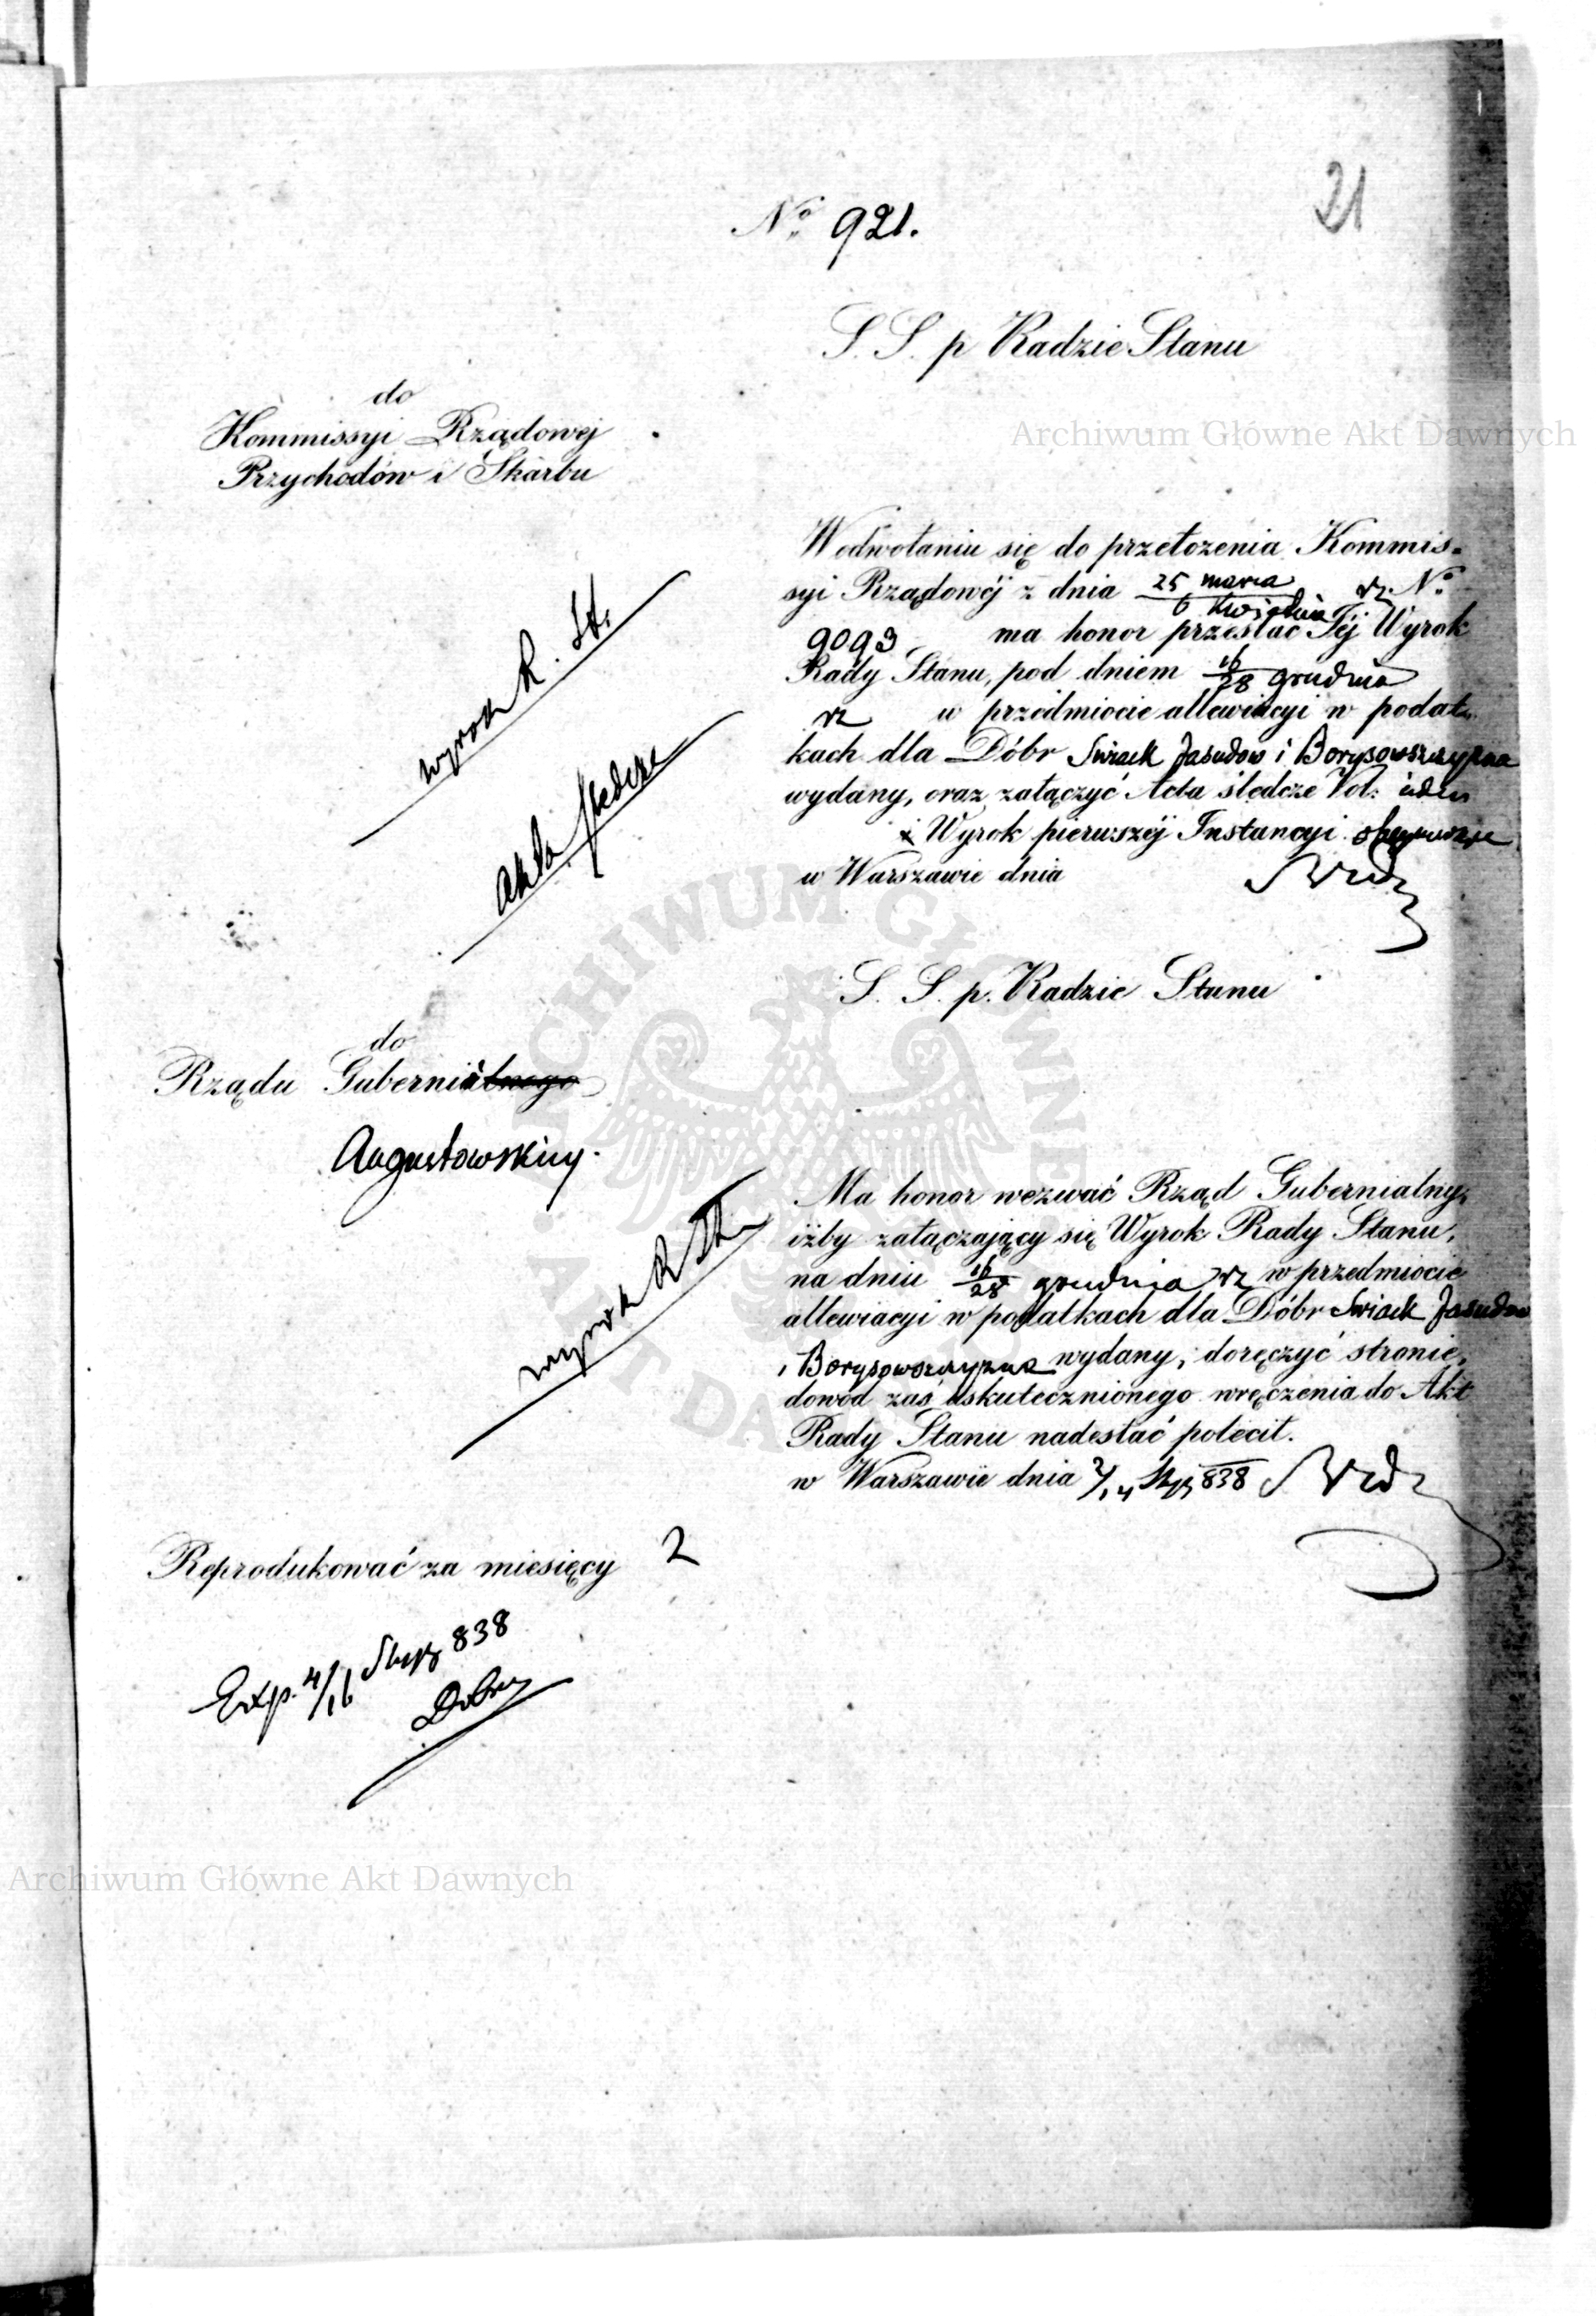 21
No 921.
S. S. p Radzie Stanu
do
Kommissyi Rządowej
Przychodów i Skarbu
W odwołaniu się do przełożenia Kommis-
syi Rządowéj z dnia 25 marca / 6 Kwietnia rz. No
9093 ma honor przesłać Téj Wyrok
Rady Stanu, pod dniem 16/28 grudnia
rz w przedmiocie allewiacyi w podat-
kach dla Dóbr Swiack Jasudow i Borysowszczyzna
wydany, oraz załączyć Acta śledcze Vol: iden
i Wyrok pierwszéj Instancyi
w Warszawie dnia
wyrok R. St.
akta śledcze
S. S. p. Radzie Stanu
do
Rządu Gubernialnego
Augustowskiey.
Ma honor wezwać Rząd Gubernialny,
iżby załączający się Wyrok Rady Stanu,
na dniu 16/28 grudnia rz w przedmiocie
allewiacyi w podatkach dla Dóbr Swiack Jasudow
i Borysowszczyzna wydany, doręczyć stronie,
dowód zaś uskutecznionego wręczenia do Akt
Rady Stanu nadesłać polecił.
w Warszawie dnia 2/14 Styz 838
wyrok R St.
Reprodukować za miesięcy 2
Exp. 4/16 Stycz 838
Archiwum Główne Akt Dawnych
Archiwum Główne Akt Dawnych
ARCHIWUM GŁÓWNE AKT DAWNYCH